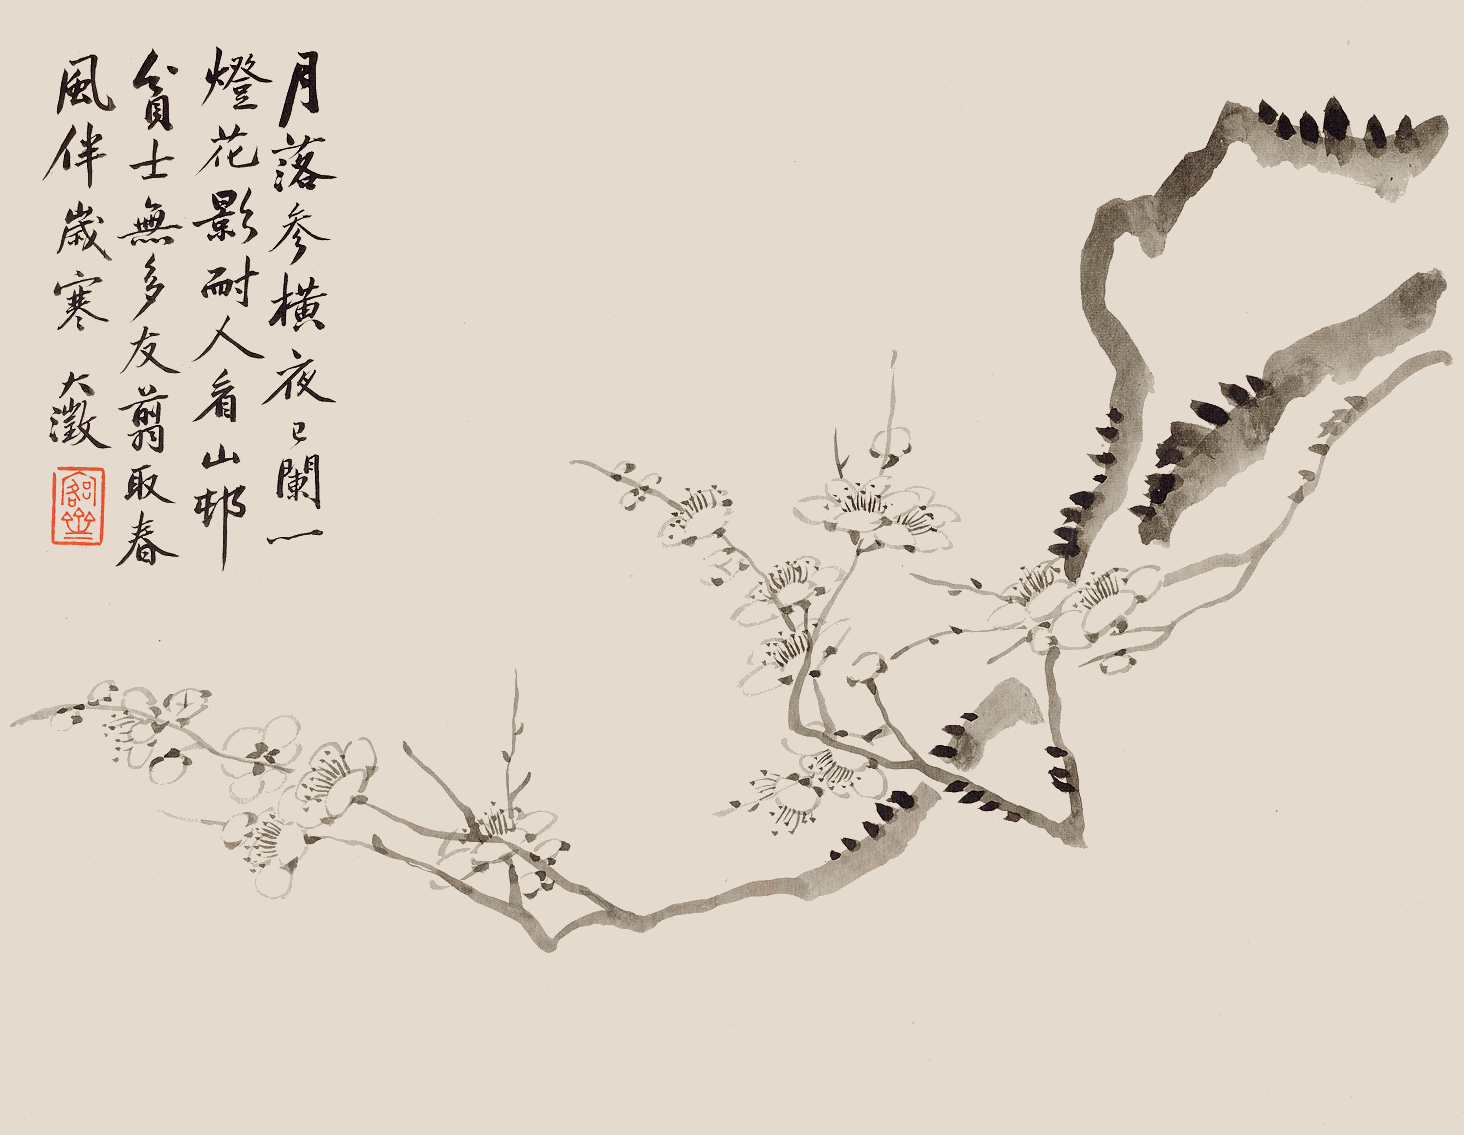 月落參橫夜已闌一
燈花影耐人看山邨
貧士無多友翦取春
風伴歲寒 大澂